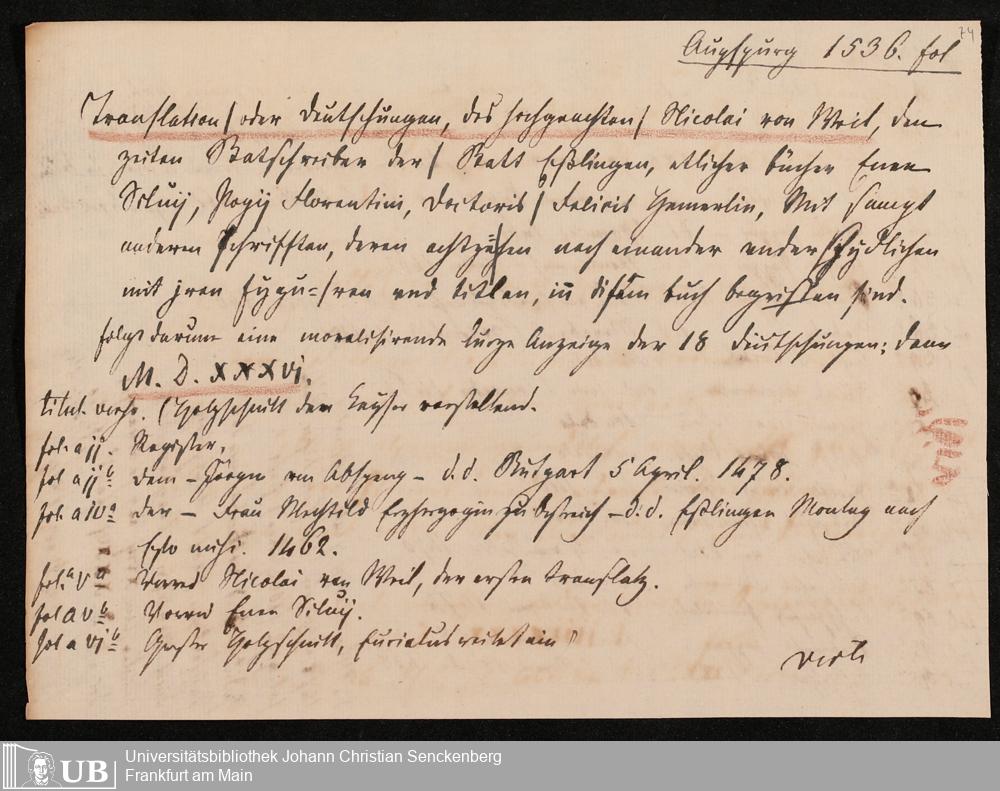 74
Augspurg 1536. fol
Translation / oder Deutschungen, des hochgeachten / Nicolai von Weil, den
zeiten Statschreiber der / Statt Eßlingen, etlicher bücher Enee
Siluij, Pogij Florentini, Doctoris / Felicis Hemerlin, Mit sampt
andern schrifften, deren achtzehen nach einander underschydlichen
mit jren figu=/ren vnd titlen, in disem buch begriffen sind.
folgt darunter eine moralisirende kurze Anzeige der 18 Deutschungen; dann
M. D. XXXVI.
titul verso. (Holzschnitt den Kayser vorstellend.
fol. a ij. Register.
fol a ij b dem – Jörgen von Absperg – d. d. Stutgart 5 April. 1478.
fol. a iv a der – Frau Mechtild Erzherzogin zu Östreich – d. d. Eßlingen Montag nach
Esto mihi. 1462.
fol. a v a Vorred Nicolai von Weil, der ersten translatz.
fol a v b Vorred Enee Siluij.
fol a vj b Erster Holzschnitt, Eurialus reitet ein
verte
UB
Universitätsbibliothek Johann Christian Senckenberg
Frankfurt am Main